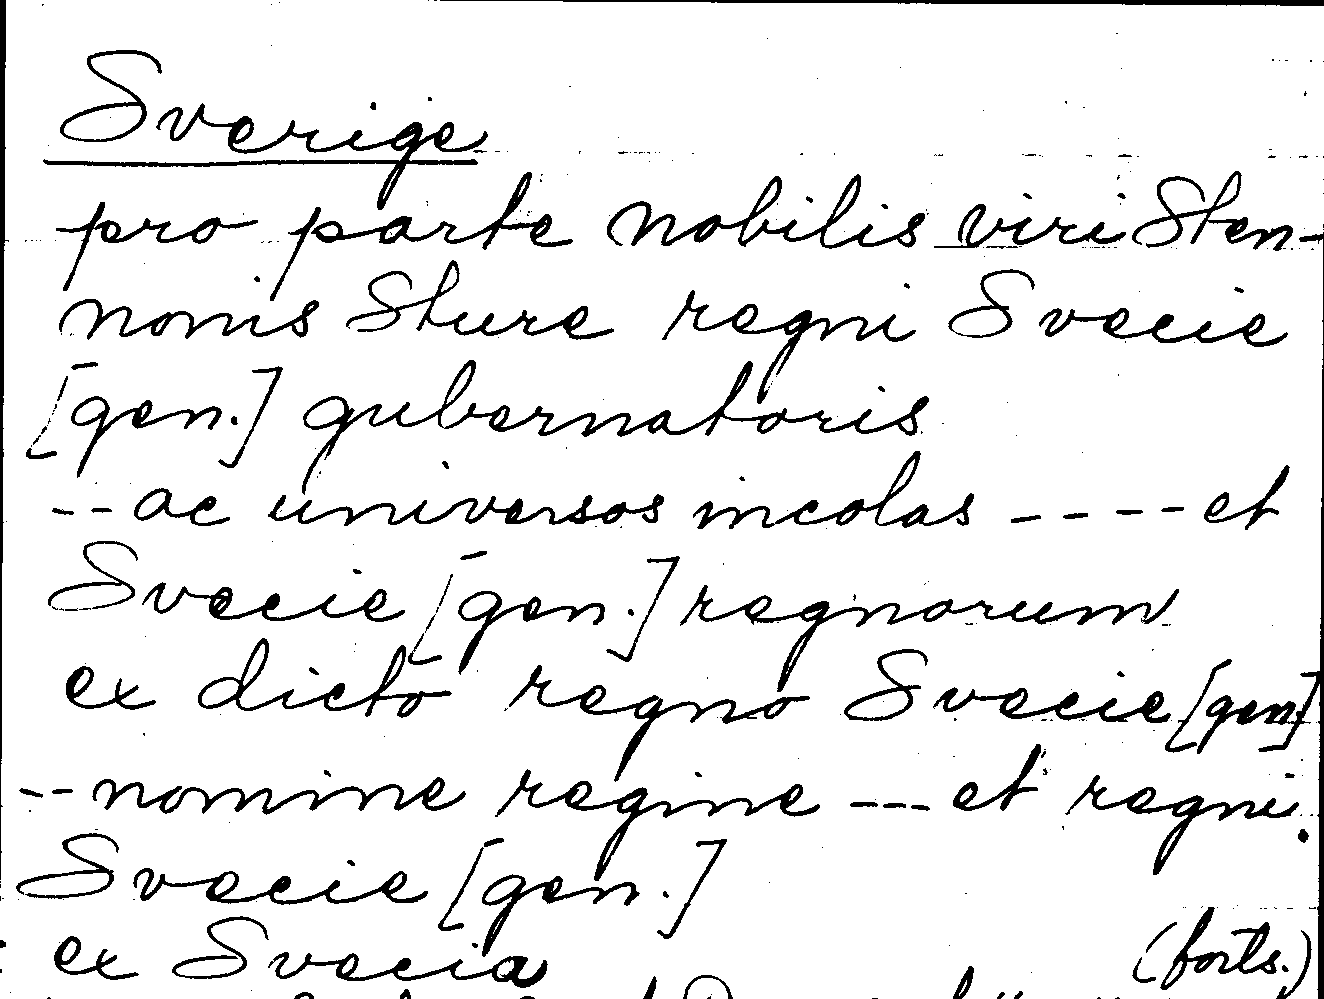 Sverige
pro parte nobilis viri Sten-
nonis Sture regni Svecie
[gen.] gubernatoris
-- ac universos incolas ---- et
Svecie [gen.] regnorum
ex dicto regno Svecie [gen]
-- nomine regine --- et regni
Svecie [gen.]
ex Svecia
(forts.)